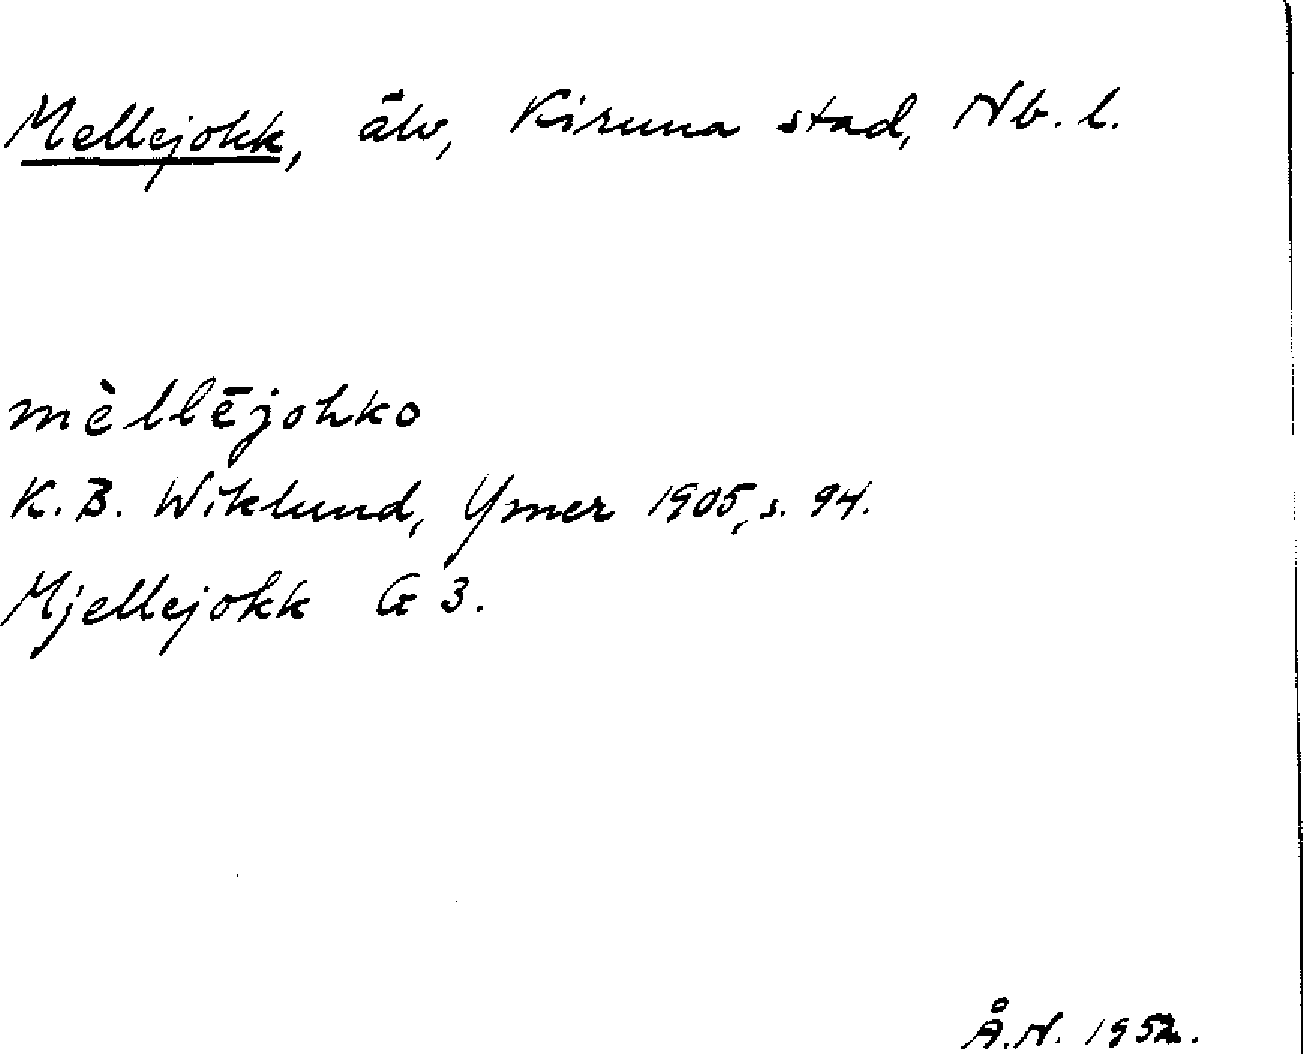 Mellejokk, älv, Kiruna stad, Nb. l.
mèllējohko
K. B. Wiklund, Ymer 1905, s. 94.
Mjellejokk G 3.
Å.N. 1952.